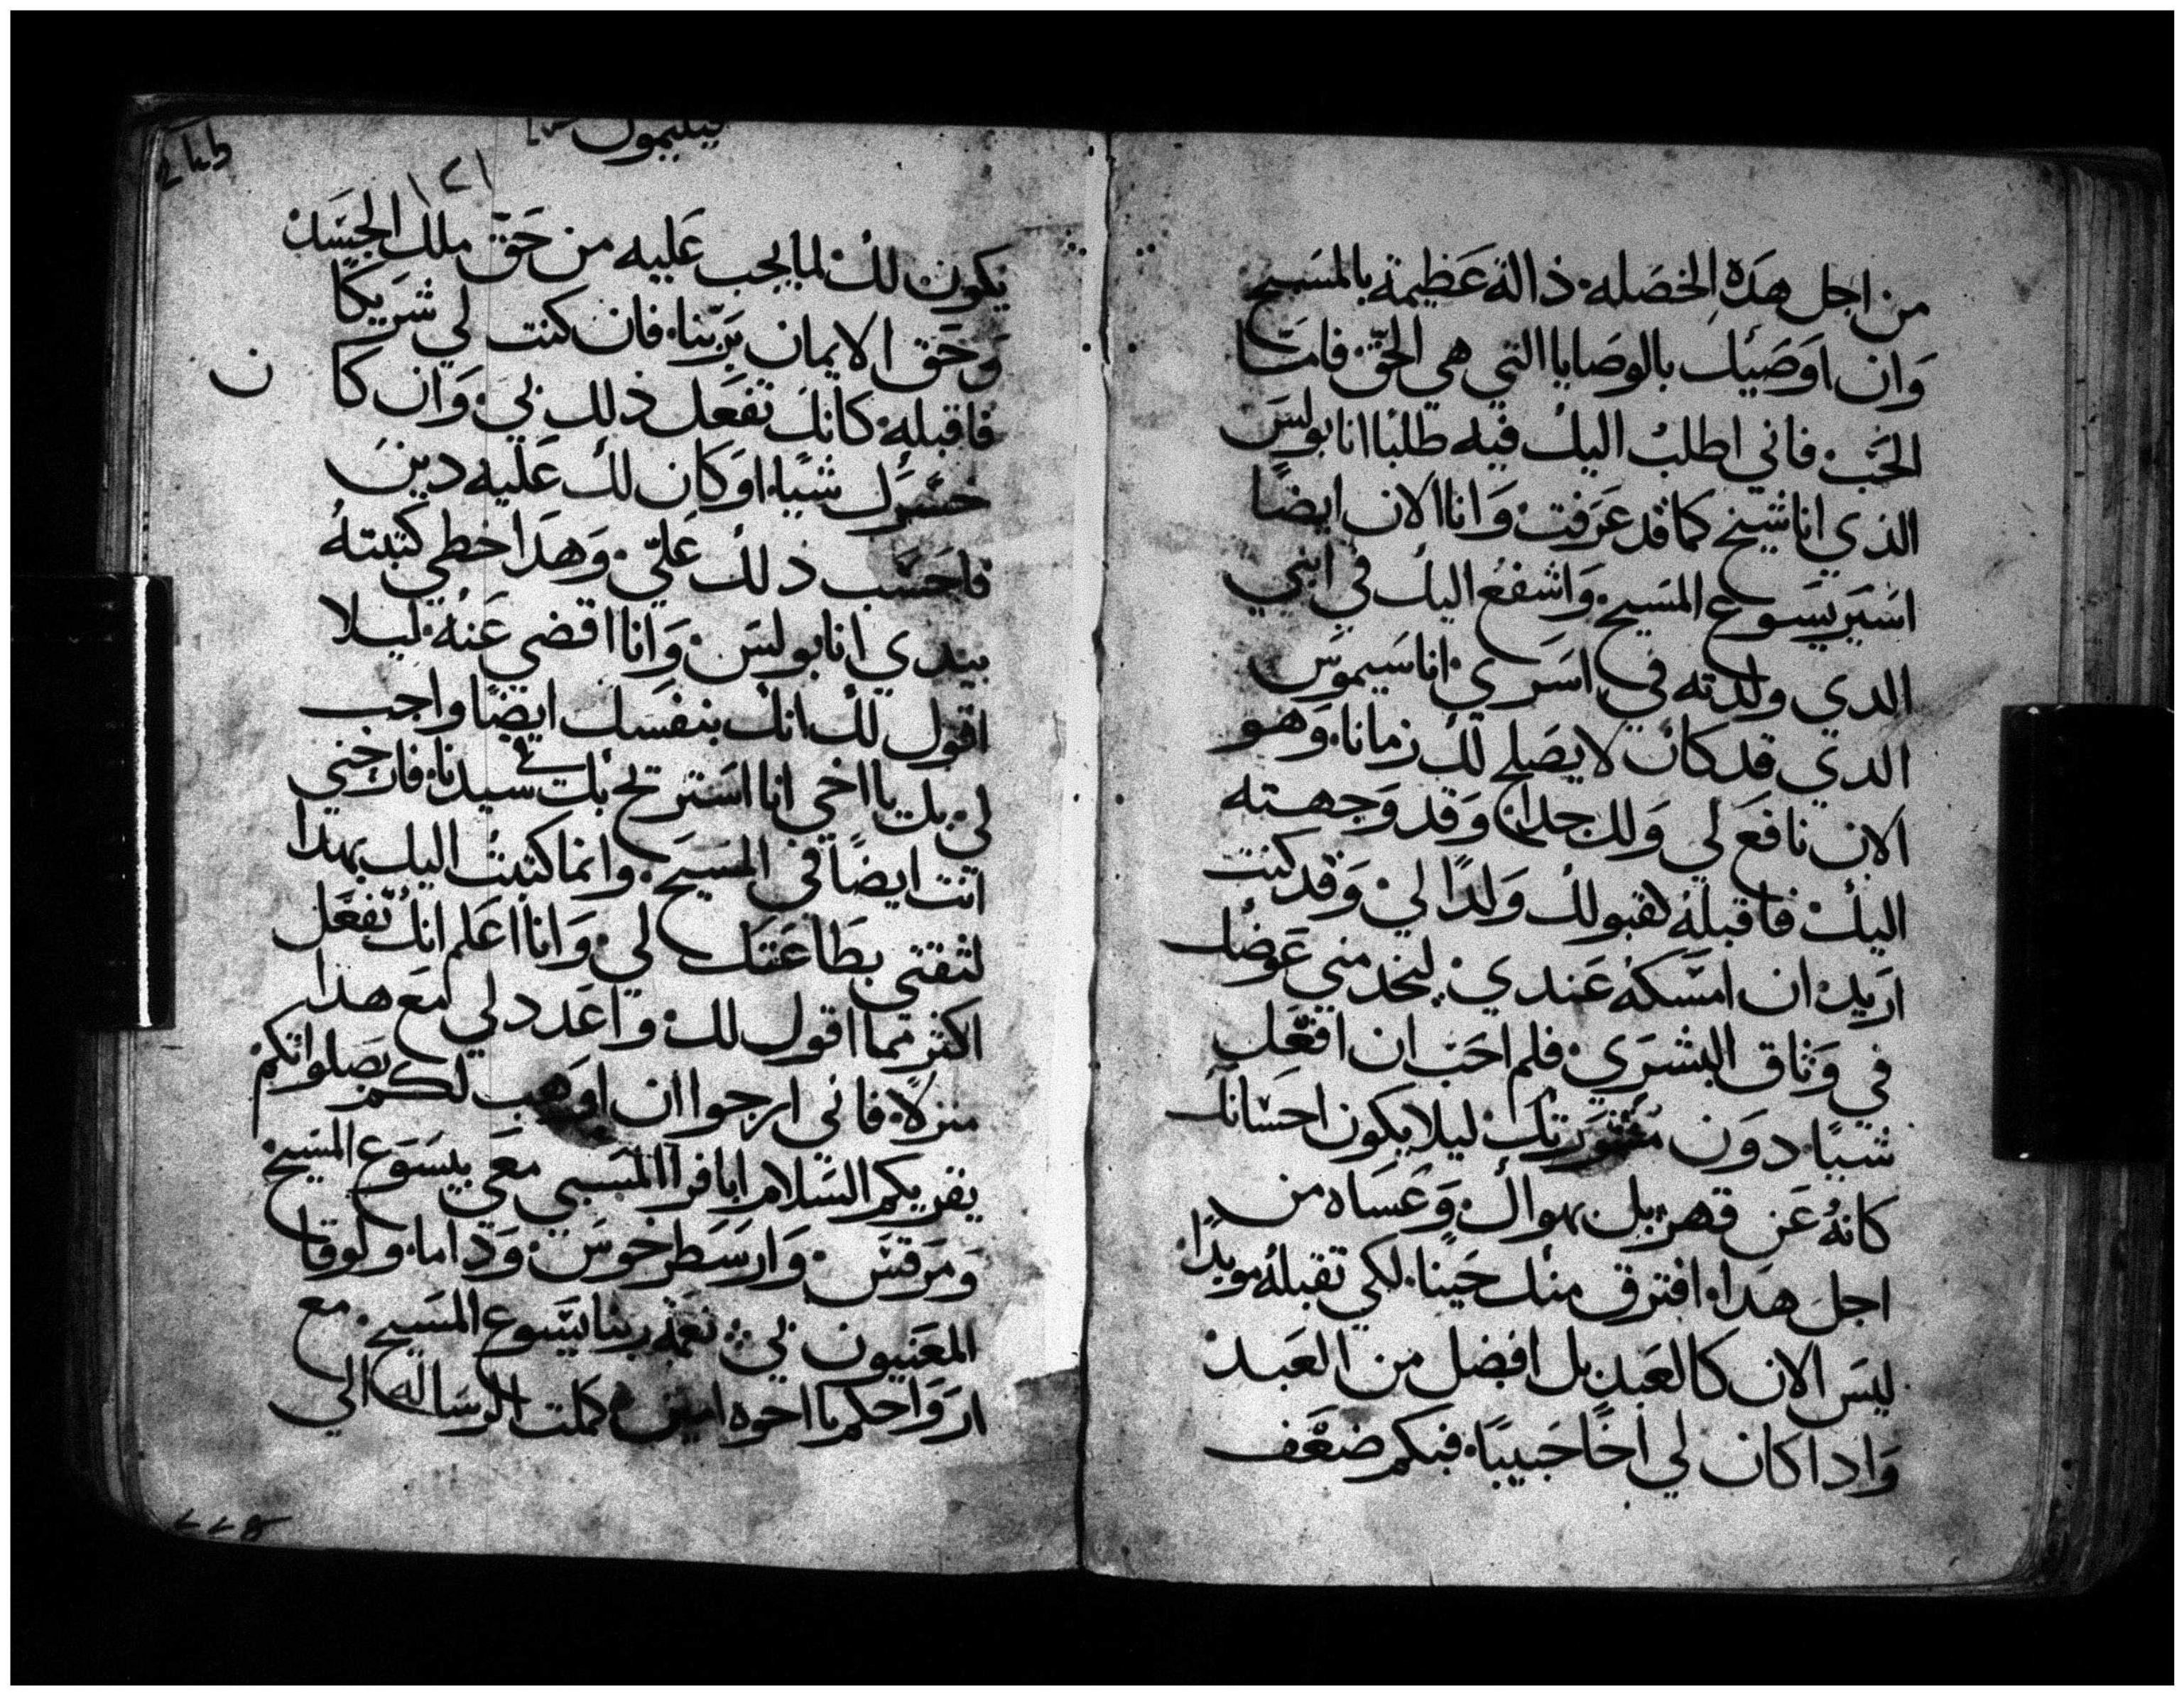 من اجل هده الخصله ذالة عظيمة بالمسيح
وان اوصيك بالوصايا التي هي الحق فاما
الحب فاني اطلب اليك فيه طلبا انا بولس
الذي انا شيخ كما قد عرفت وانا الان ايضا
اسير يسوع المسيح واشفع اليك في ابني
الدي ولدته في اسري اناسيموس
الدي قد كان لا يصلح لك زمانا وهو
الان نافع لي ولك جدا وقد وجهته
اليك فاقبله لقبولك ولدا لي وقد كنت
اريد ان امسكه عندي ليخدمني عوضك
في وثاق البشري فلم احب ان افعل
شيا دون مشورتك ليلا يكون احسانك
كانه عن قهر بل بهواك وعساه من
اجل هدا افترق منك حينا لكي تقبله موبدا
ليس الان كالعبد بل افضل من العبد
وادا كان لي اخا حبيبا فبكم ضعف
فيليمون
١٢١
يكون لك لما يجب عليه من حق ملك الجسد
وحق الايمان بربنا فان كنت لي شريكا
فاقبله كانك تفعل ذلك بي وان كا ن
خسرك شيا او كان لك عليه دين
فاحسب ذلك علي وهدا خطي كتبته
بيدي انا بولس وانا اقضي عنه ليلا
اقول لك انك بنفسك ايضا واجب
لي بك يا اخي انا استريح بك في سيدنا فارحني
انت ايضا في المسيح وانما كتبت اليك بهدا
لثقتي بطاعتك لي وانا اعلم انك تفعل
اكثر مما اقول لك واعدد لي مع هدا
منزلا فاني ارجوا ان اوهب لكم بصلواتكم
يقريكم السلام ابافرا المسبي معي بيسوع المسيح
ومرقس وارسطرخوس وداما ولوقا
المعنيون بي نعمة ربنا يسوع المسيح مع
ارواحكم يا اخوه امين كملت الرساله الي